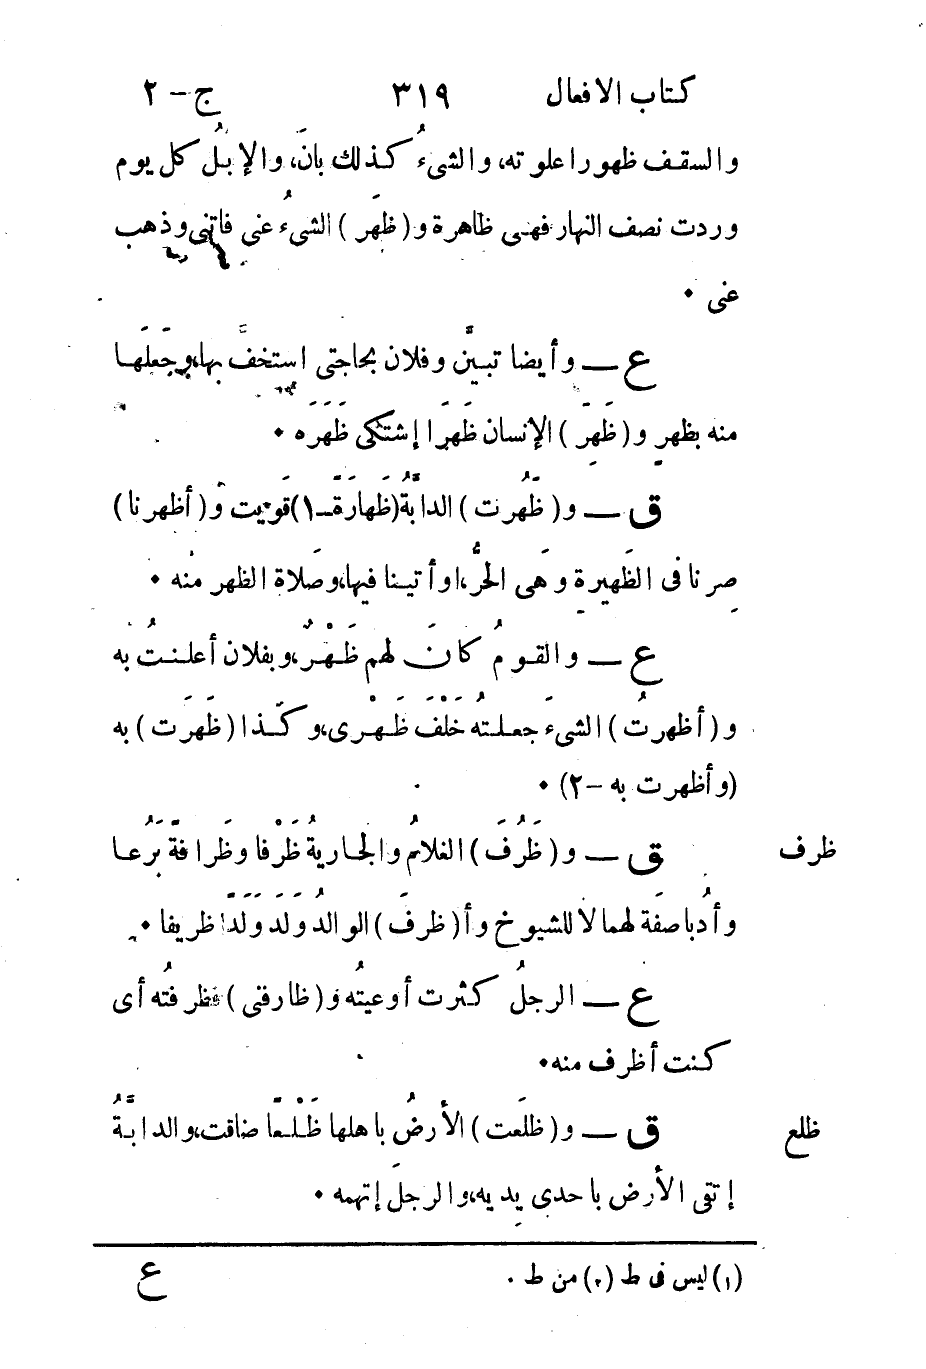 كتاب الافعال ٣١٩ ج – ٢
والسقف ظهورا علوته، والشىءُ كذلك بانَ، والإبلُ كل يوم
وردت نصف النهار فهى ظاهرة و(ظهَر) الشىءُ عنى فاتنى وذهب
عنى •
ع – وأيضا تبيَّن وفلان بحاجتى استخفَّ بها، وجَعَلَها
منه بظهرٍ و(ظَهِرَ) الإنسان ظَهَرًا إشتكى ظَهَرَه •
ق – و(ظَهُرت) الدابَّةُ(ظَهارَةً–١)قويَت و(أظهرنا)
صِرنا فى الظَهِيرة وهَى الحَرُّ، اوأتينا فيها، وصَلاة الظهر منُه •
ع – والقومُ كانَ لهم ظَهْرٌ، وبفلان أعلنتُ به
و(أظهرتُ) الشىءَ جعلتهُ خَلْفَ ظَهْرى، وكَذا (ظَهَرَت) به
(وأظهرت به –٢) •
ظرف ق – و(ظَرُفَ) الغلامُ والجاريةُ ظَرْفا وظَرافةً بَرُعا
وأدُبا صفَة لهما لا للشيوخ وأ(ظرفَ) الوالدُ وَلَدَ وَلَدًا ظريفا •
ع – الرجلُ كثرت أوعيتُه و(ظارفنى) فظرفتُه أى
كنت أظرف منه •
ظلع ق – و(ظلَعت) الأرضُ باهلها ظَلْعًا ضاقت، والدابَّةُ
إتقى الأرض باحدى يديه، والرجلَ إتهمه •
(١) ليس فى ط (٢) من ط . ع